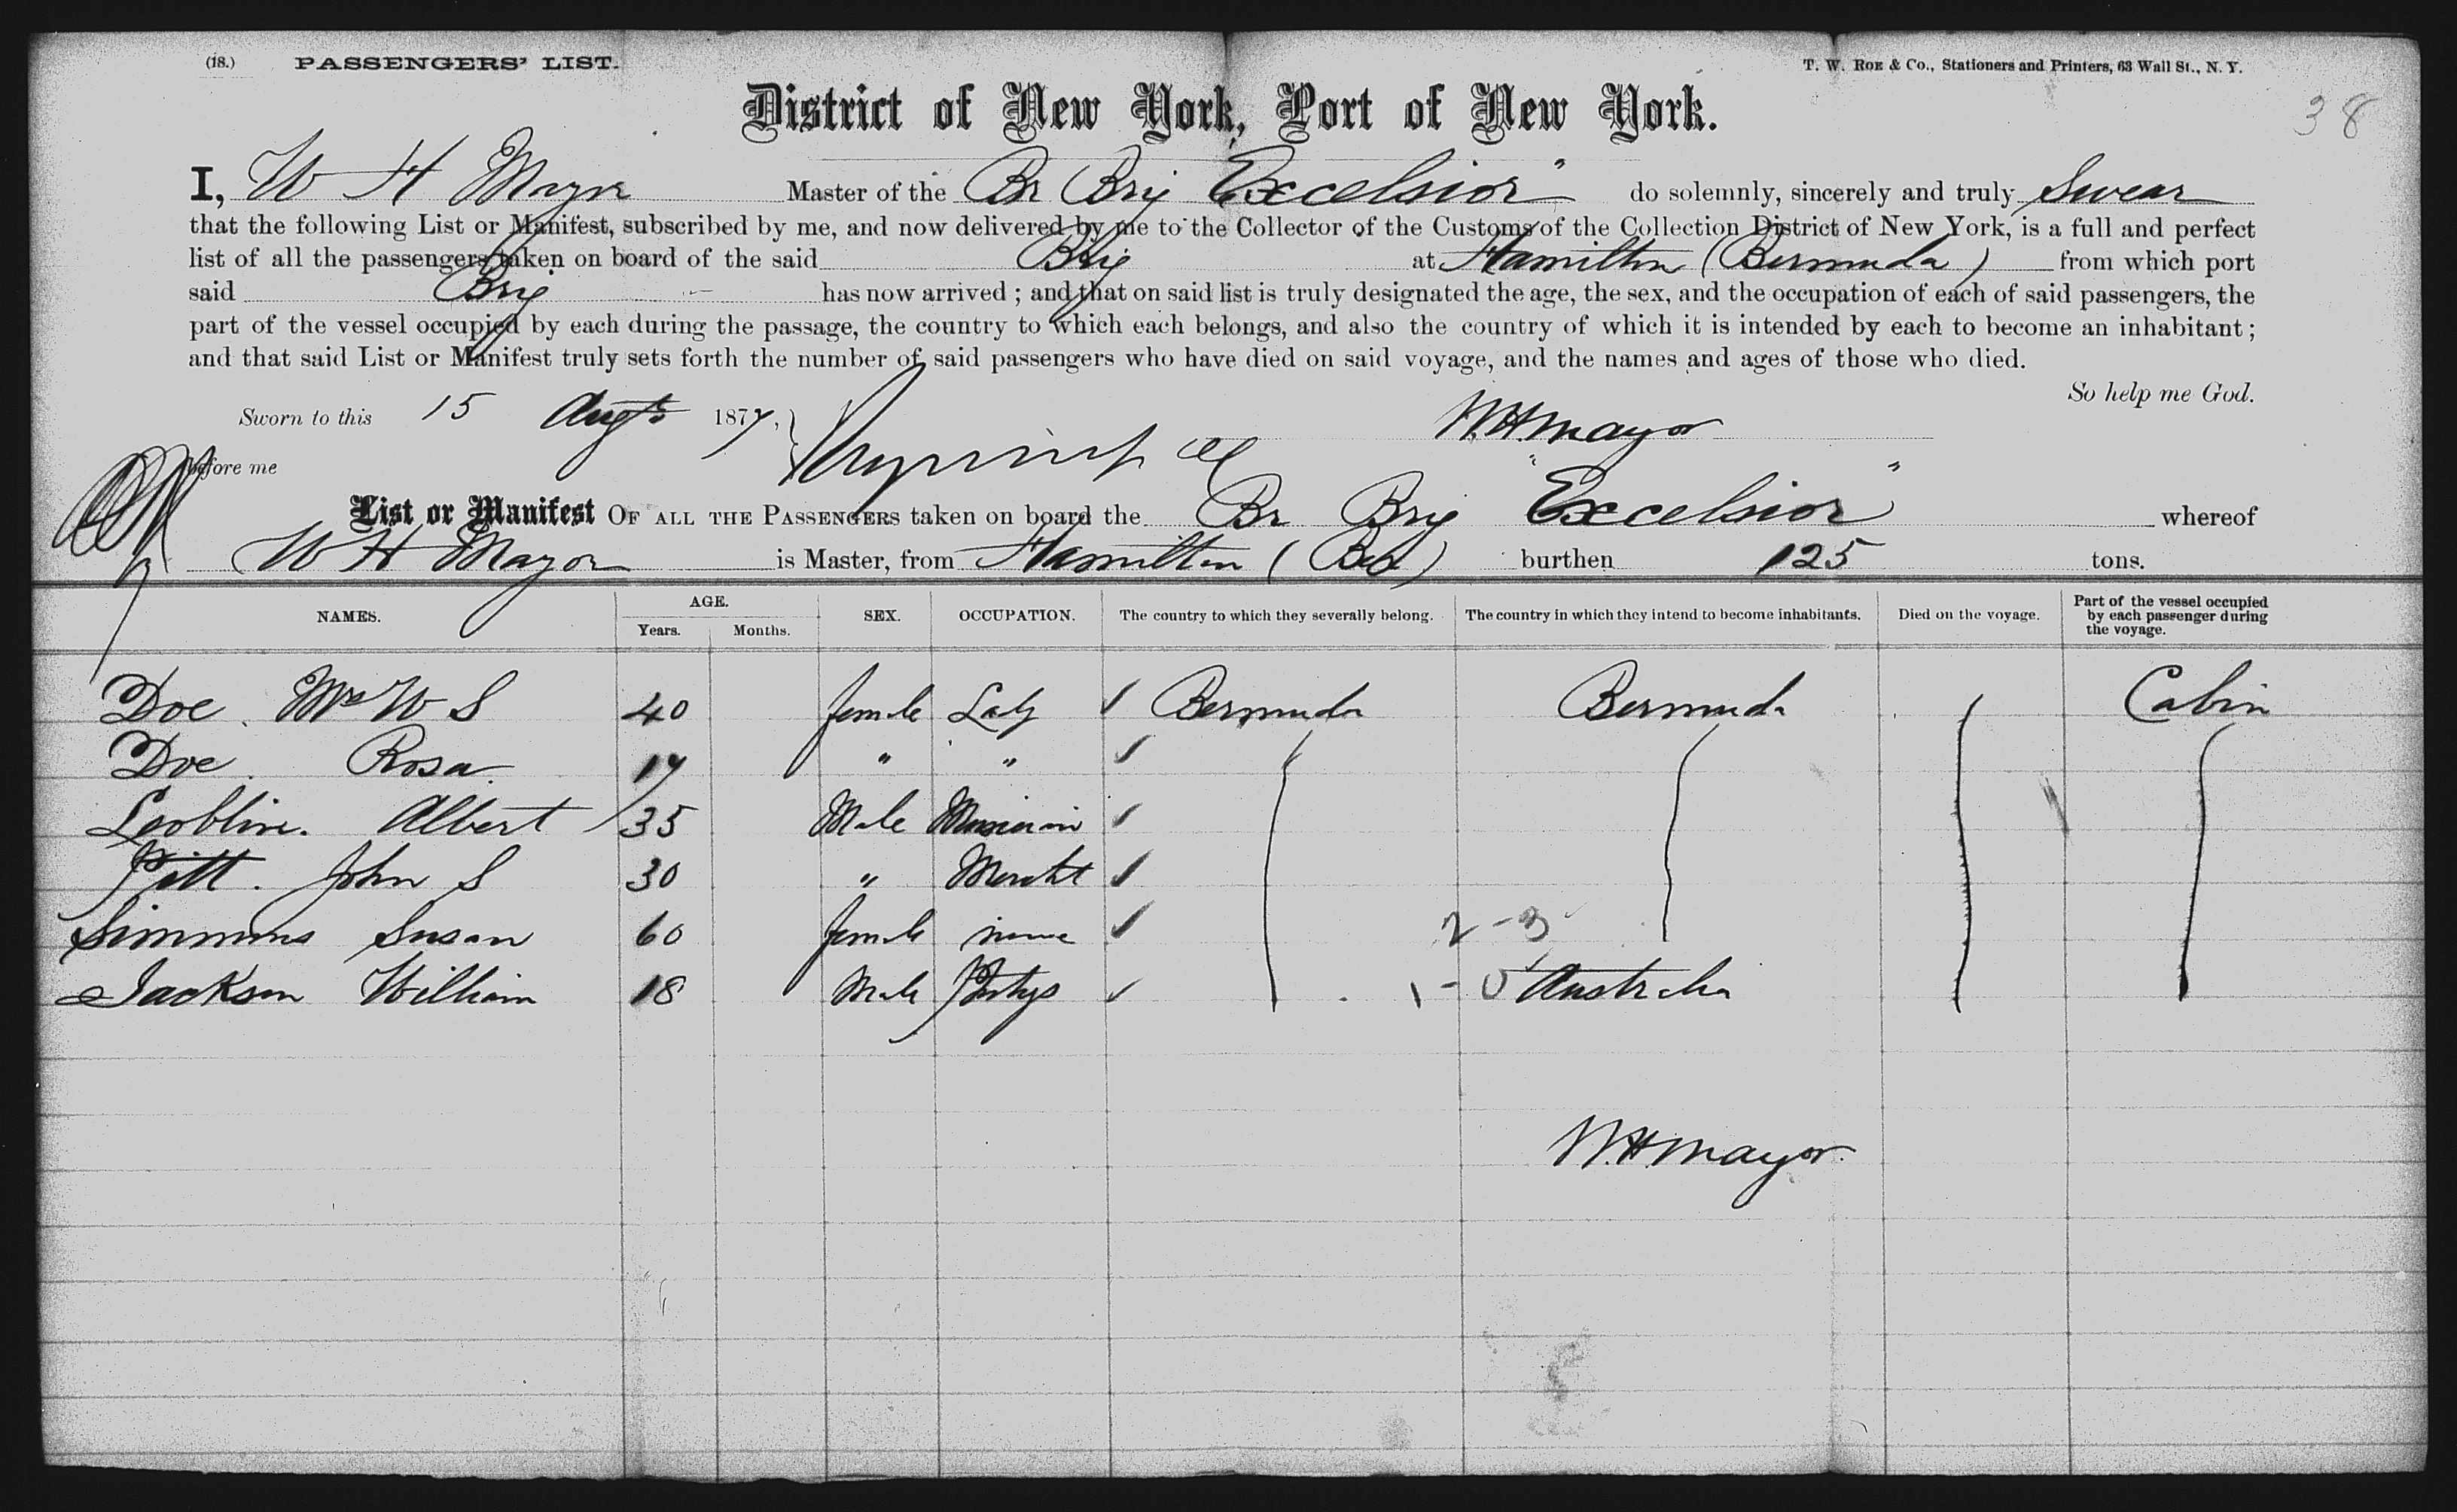 (18.) PASSENGERS' LIST. T. W. ROE & Co., Stationers and Printers, 63 Wall St., N. Y.
38
District of New York, Port of New York.
I, W H Mayor Master of the Br Brig "Excelsior" do solemnly, sincerely and truly Swear
that the following List or Manifest, subscribed by me, and now delivered by me to the Collector of the Customs of the Collection District of New York, is a full and perfect
list of all the passengers taken on board of the said Brig at Hamilton (Bermuda) from which port
said Brig has now arrived ; and that on said list is truly designated the age, the sex, and the occupation of each of said passengers, the
part of the vessel occupied by each during the passage, the country to which each belongs, and also the country of which it is intended by each to become an inhabitant ;
and that said List or Manifest truly sets forth the number of said passengers who have died on said voyage, and the names and ages of those who died.
So help me God.
Sworn to this 15 Augt 1877, W.H. Mayor
before me
List or Manifest OF ALL THE PASSENGERS taken on board the Br Brig "Excelsior" whereof
W H Mayor is Master, from Hamilton (Bed) burthen 125 tons.
NAMES. AGE. Years. Months. SEX. OCCUPATION. The country to which they severally belong. The country in which they intend to become inhabitants. Died on the voyage. Part of the vessel occupied by each passenger during the voyage.
Doe. Mrs W S 40 female Lady ✓ Bermuda Bermuda Cabin
Doe. Rosa 17 " " ✓
Albert 35 Male Musician ✓
Pitt. John S 30 " Mercht ✓
Simmons Susan 60 female ✓ 2-3
Jackson William 18 Male ✓ 1-0 Australia
W.H. Mayor.